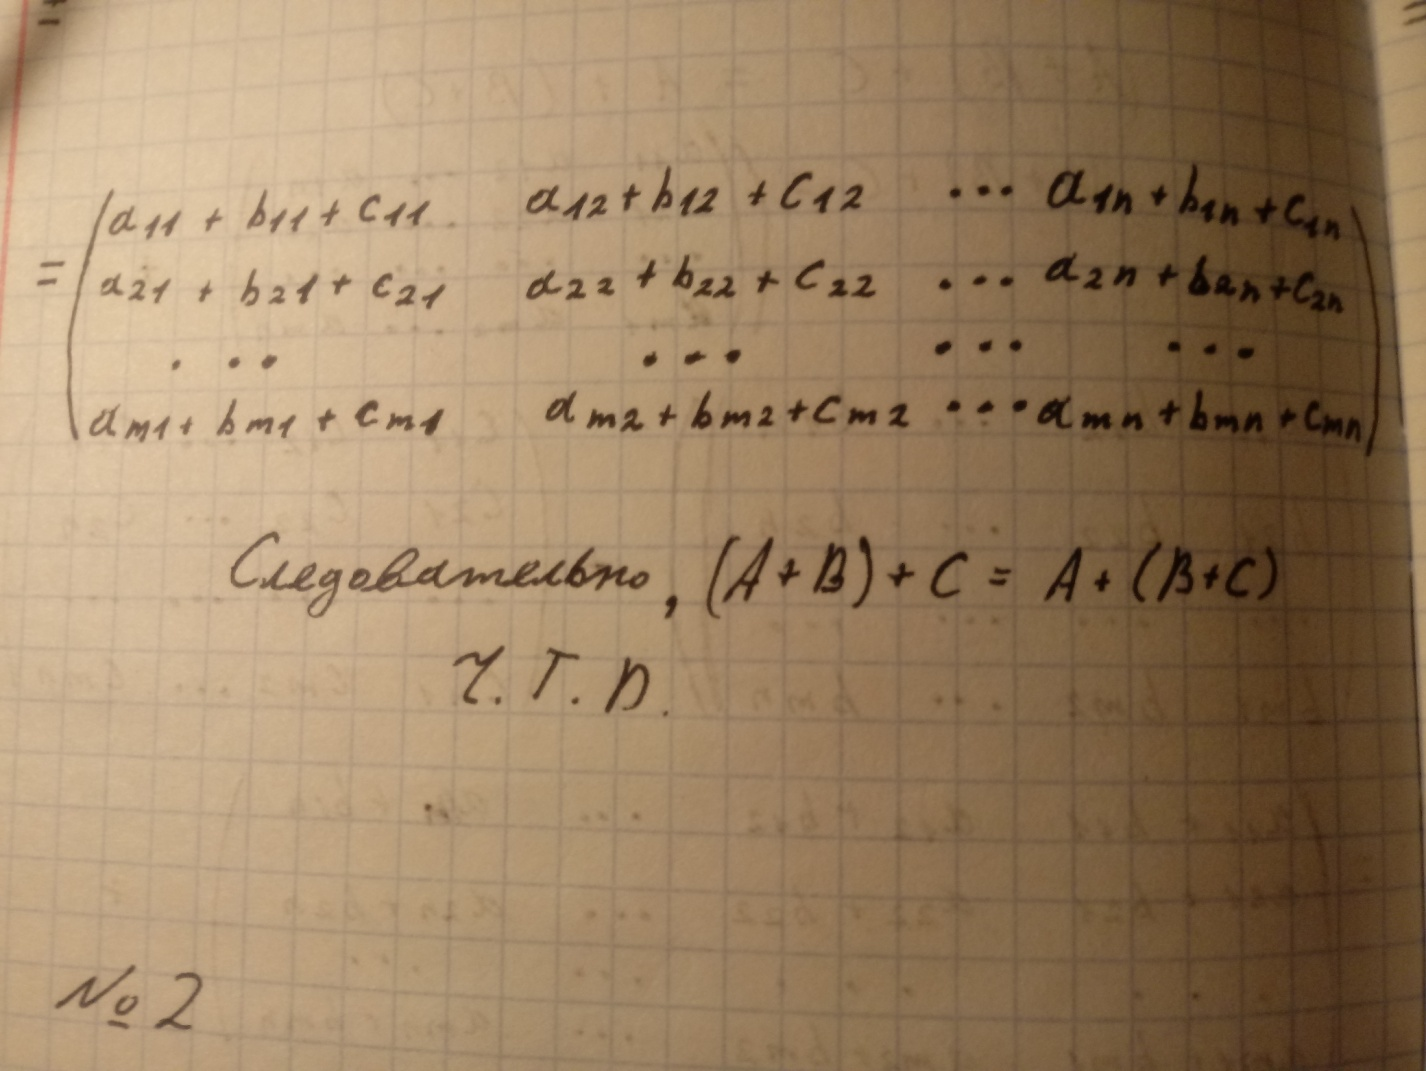 = ( a11 + b11 + c11 a12 + b12 + c12 ... a1n + b1n + c1n
a21 + b21 + c21 a22 + b22 + c22 ... a2n + b2n + c2n
... ... ... ...
am1 + bm1 + cm1 am2 + bm2 + cm2 ... amn + bmn + cmn )
Следовательно, (A + B) + C = A + (B + C)
Ч. Т. D.
№ 2